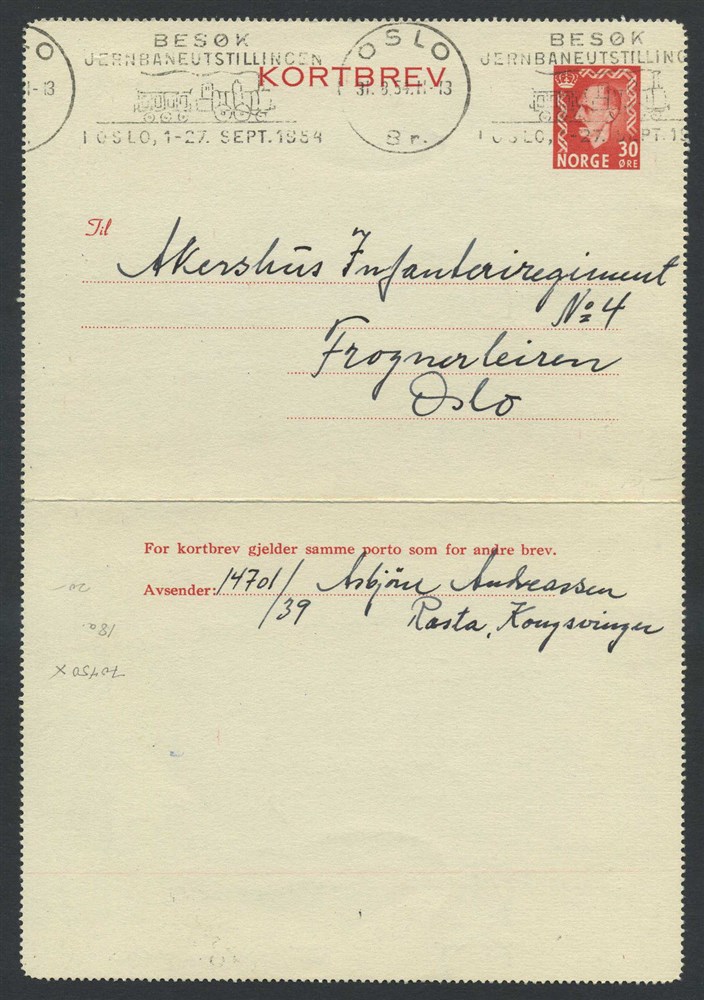 OSLO
BESØK
JERNBANEUTSTILLINGEN
I OSLO, 1-27. SEPT. 1954
KORTBREV
OSLO
31. 8. 54. 11-13
Br.
BESØK
JERNBANEUTSTILLING
I OSLO, 1-27. SEPT. 19
NORGE 30 ØRE
Til
Akershus Infanteriregiment
No 4
Frognerleiren
Oslo
For kortbrev gjelder samme porto som for andre brev.
Avsender: 14701/39 Asbjørn Andreassen
Rasta, Kongsvinger
20
18a.